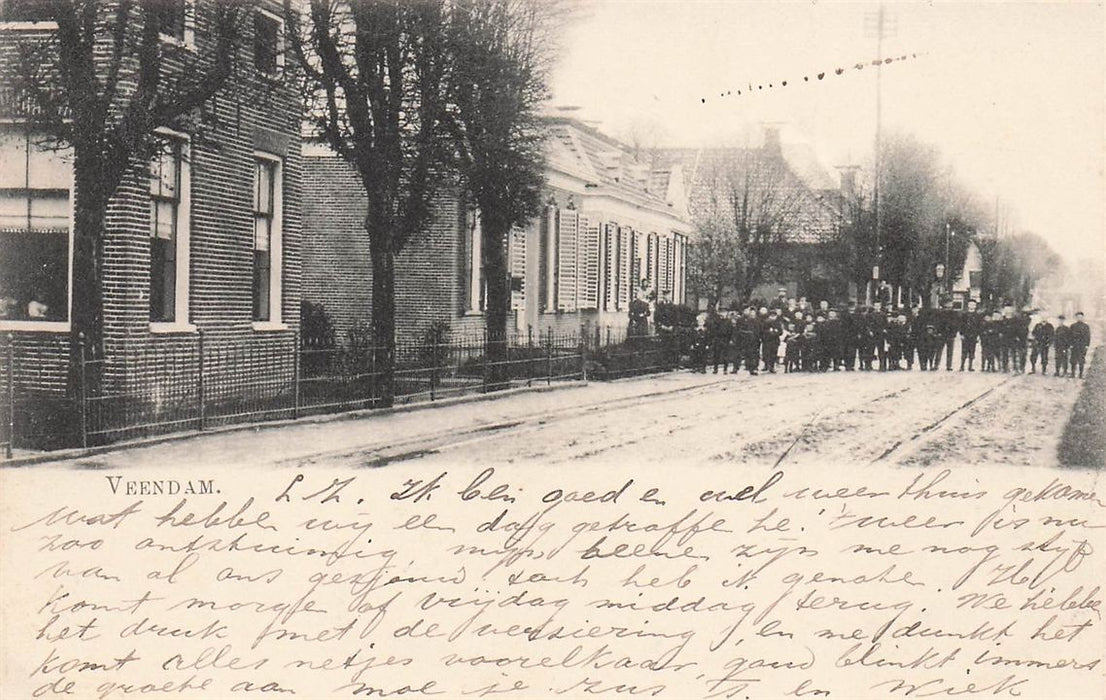 VEENDAM.
L. Z. Ik ben goed en wel weer thuis gekomen
Wat hebben wij een dag getroffe he! 't weer is nu
zoo onstuimig mijn beenen zijn me nog stijf
van al ons gesjouw toch heb ik genoten. H
komt morge of vrijdag middag terug. We hebben
het druk met de versiering, en me dunkt het
komt alles netjes voorelkaar, goud blinkt immers
de groete aan moe je zus T. en Wiek